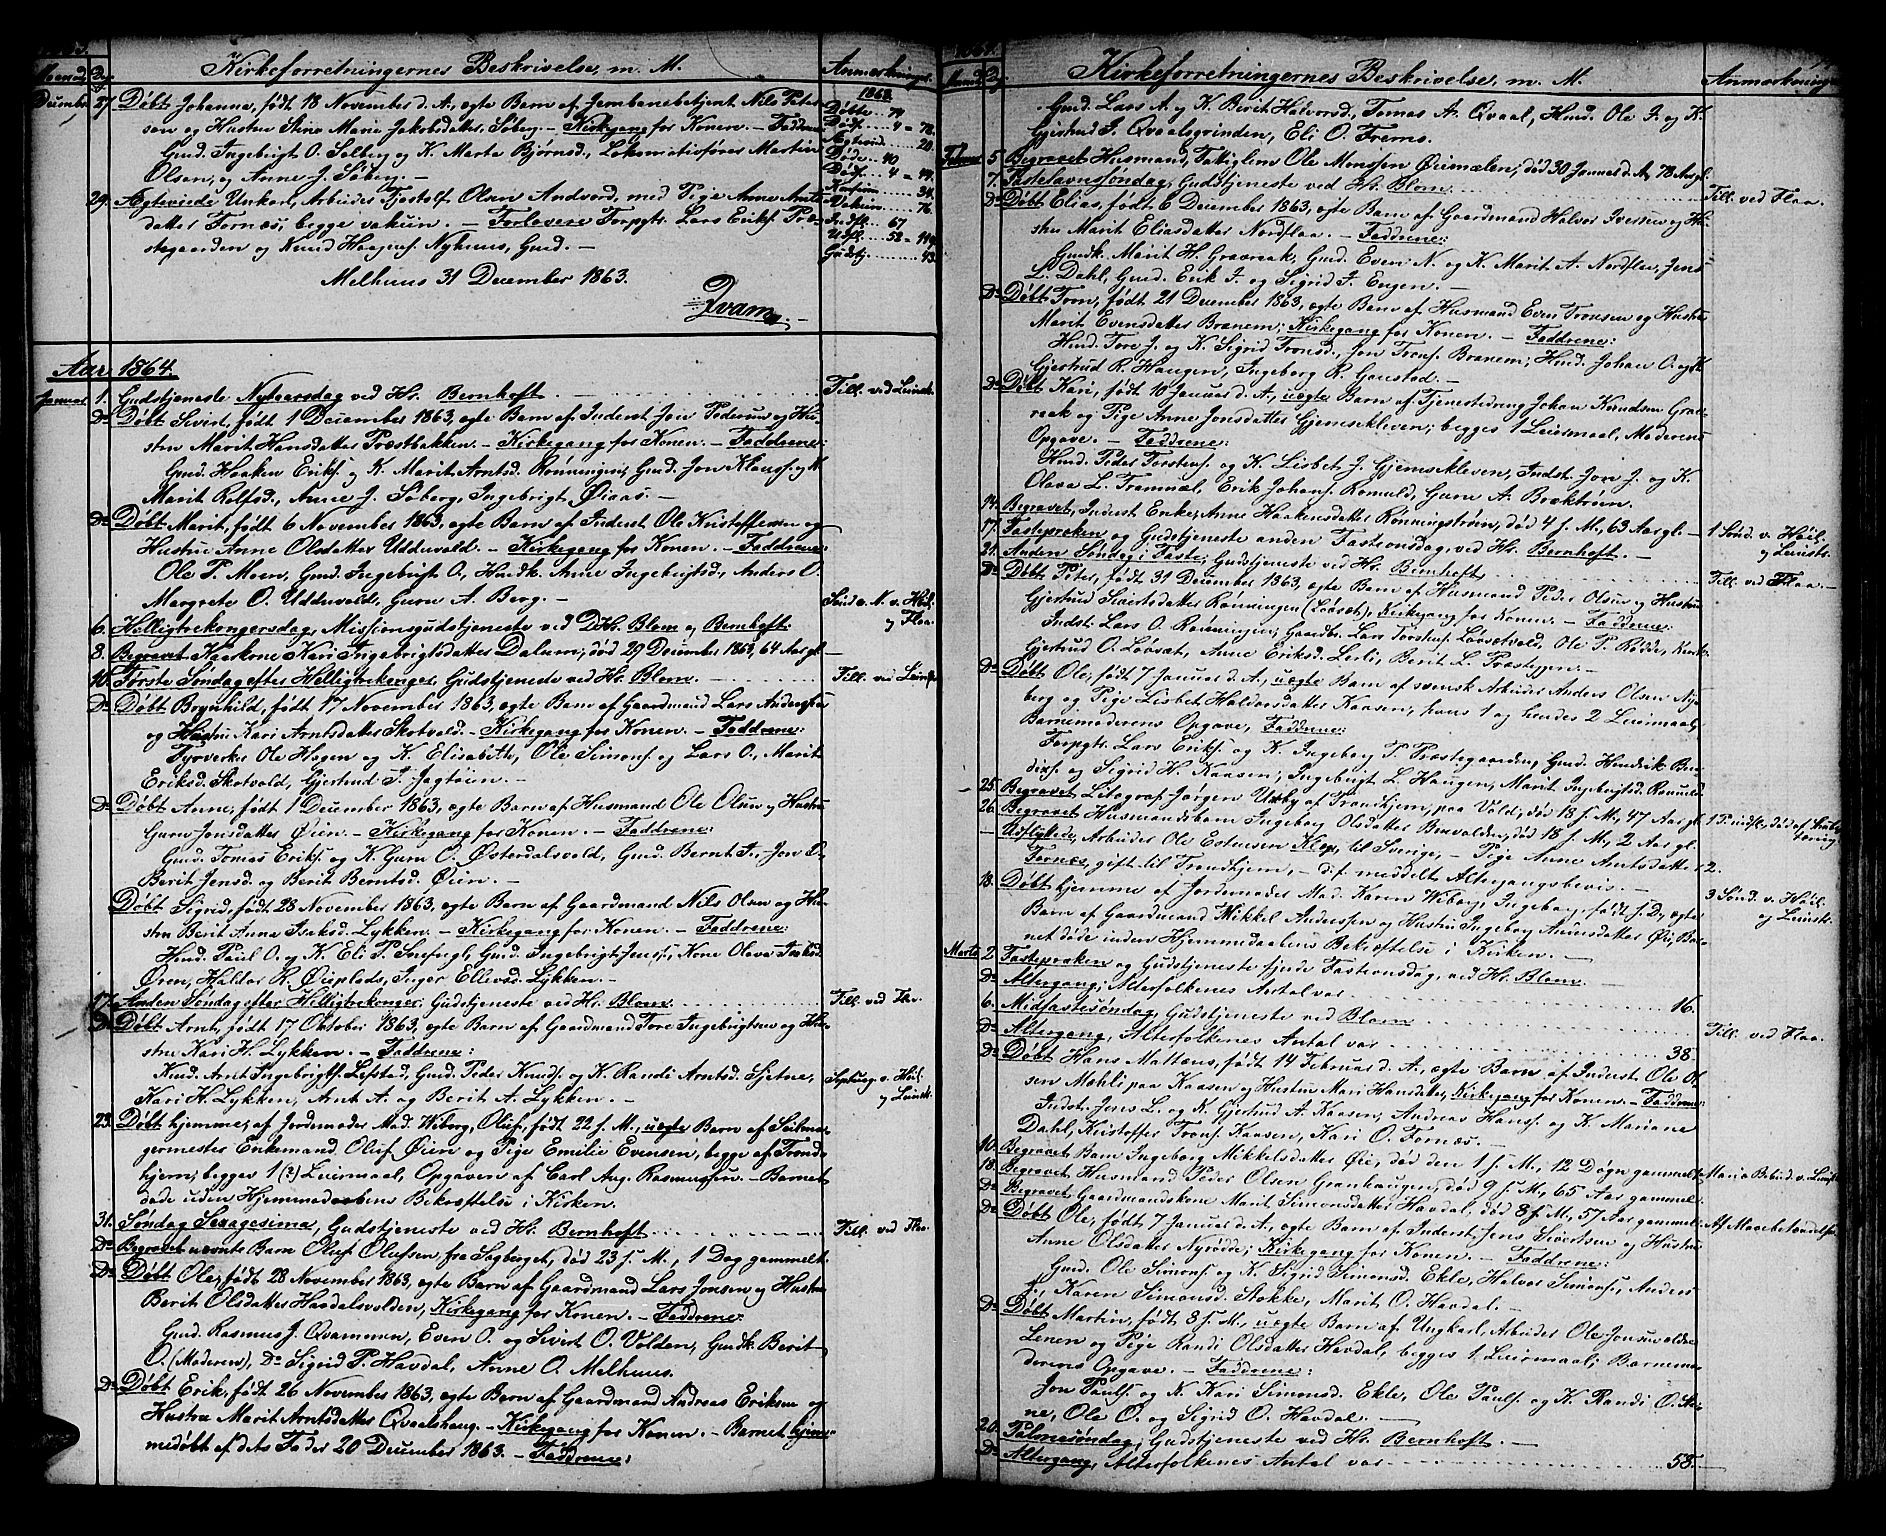 1863.
Kirkeforretningernes Beskrivelse, m. M.
Maaned Dag
Anmærkninger.
December 27. Døbt Johanna, født 18 November d. A., ægte Barn af Jernbanebetjent Nils Peter-
sen og Hustru Stine Marie Jakobsdatter Søberg. – Kirkegang for Konen. – Faddrene:
Gmd. Ingebrigt O. Solberg og K. Marta Bjørnsd., Lokomotivfører Martin
Olsen, og Anne J. Søberg. –
29. Ægteviede Unkarl, Arbeider Tjostolf Olsen Andvord, med Pige Anne Arnts-
datter Fornæs, begge vakcin. – Forlovere Forpgtr. Lars Eriks. Præ-
stegaarden og Knud Haagens. Nyhuus, Gmd. –
1863.
Døde.. 40
Indfl... 67
Udfl... 52 = 119.
Gudstj. ... 43.
Melhuus 31 December 1863.
Qvam.
Aar 1864.
Januar 1. Gudstjeneste Nytaarsdag ved Hr. Bernhoft.
Till. ved Leinst.
Do Døbt Sivert, født 1 December 1863, ægte Barn af Inderst Jon Pedersen og Hu-
stru Marit Hansdatter Præstbakken. – Kirkegang for Konen. – Faddrene:
Gmd. Haaken Eriks. og K. Marit Arntsd. Rønningen, Gmd. Jon Klaus. og K.
Marit Rolfsd., Anne J. Søberg, Ingebrigt Øiaas. –
Do Døbt Marit, født 6 November 1863, ægte Barn af Inderst Ole Kristoffersen og
Hustru Anne Olsdatter Udduvold. – Kirkegang for Konen. – Faddrene:
Ole P. Moen, Gmd. Ingebrigt O., Husdk. Anne Ingebrigtsd., Anders O.
Margrete O. Udduvold, Guru A. Berg. –
6. Helligtrekongersdag, Missionsgudstjeneste ved DHr. Blom og Bernhoft.
Sønd. e. N. v. Høil.
og Flaa.
8. Begravet Kaarkone Kari Ingebrigtsdatter Dalum, død 29 December 1863, 64 Aar gl. –
10. Første Søndag efter Helligtrekonger, Gudstjeneste ved Hr. Blom.
Till. ved Leinst.
Do Døbt Brynhild, født 17 November 1863, ægte Barn af Gaardmand Lars Andersen
og Hustru Kari Arntsdatter Skotvold. – Kirkegang for Konen. – Faddrene:
Fyrverker Ole Hagen og K. Elisabeth, Ole Simons. og Lars O., Marit
Eriksd. Skotvold, Gjertrud I. Jagtøien. –
Do Døbt Anne, født 1 December 1863, ægte Barn af Husmand Ole Olsen og Hustru
Guru Jonsdatter Øien. – Kirkegang for Konen. – Faddrene:
Gmd. Tomas Eriks. og K. Guru O. Østerdalsvold, Gmd. Bernt I., Jon O.
Berit Jensd. og Berit Berntsd. Øien. –
Døbt Sigrid, født 28 November 1863, ægte Barn af Gaardmand Nils Olsen og Hu-
stru Berit Anna Isaksd. Lykken. – Kirkegang for Konen. – Faddrene:
Husd. Paul O. og K. Eli P. Snefugl, Gmd. Ingebrigt Jens., Kone Olava Isaksd.
Øren, Haldor R. Øieplads, Inger Ellevsd. Lykken. –
17. Anden Søndag efter Helligtrekonger, Gudstjeneste ved Hr. Blom.
Till. ved Flaa.
Do Døbt Arnt, født 17 Oktober 1863, ægte Barn af Gaardmand Tore Ingebrigtsen og Hu-
stru Kari H. Lykken. – Faddrene:
Knud. Arnt Ingebrigts. Løfstad, Gmd. Peder Knuds. og K. Randi Arntsd. Sjetne,
Kari H. Lykken, Arnt A. og Berit A. Lykken. –
Septuag. v. Høil.
og Leinst.
23. Døbt hjemme, af Jordemoder Mad. Wiborg, Oluf, født 22 f. M., uægte Barn af Seilma-
germester Enkemand Oluf Øien og Pige Emilie Evensen, begge af Trond-
hjem, begges 1 (?) Leiermaal, Opgaven af Carl Aug. Rasmussen. – Barnet
døde uden Hjemmedaabens Bekræftelse i Kirken.
31. Søndag Sexagesima, Gudstjeneste ved Hr. Bernhoft.
Till. ved Flaa.
Do Begravet uægte Barn Oluf Olufsen fra Sagberget, død 23 f. M., 1 Dag gammelt.
Do Døbt Ole, født 28 November 1863, ægte Barn af Gaardmand Lars Jonsen og Hustru
Berit Olsdatter Havdalsvolden, Kirkegang for Konen. – Faddrene:
Gmd. Rasmus J. Qvammen, Even O. og Sivert O. Volden, Gmdk. Berit
O. (Moderen), Do Sigrid P. Havdal, Anne O. Melhuus.
Do Døbt Erik, født 26 November 1863, ægte Barn af Gaardmand Andreas Eriksen og
Hustru Marit Arntsdatter Qvaalshaug. – Kirkegang for Konen. – Barnet hjem-
medøbt af dets Fader 20 December 1863. – Faddrene:
1864.
Maaned Dag
Kirkeforretningernes Beskrivelse, m. M.
Anmærkninger
Gmd. Lars A. og K. Berit Halvorsd., Tomas A. Qvaal, Husd. Ole J. og K.
Gjertrud I. Qvaalsgrinden, Eli O. Fremo.
Februar 5. Begravet Husmand, Fattiglem Ole Monssen Øiemælen, død 30 Januar d. A., 78 Aar gl.
7. Fastelavnssøndag, Gudstjeneste ved Hr. Blom.
Till. ved Flaa.
Do Døbt Elias, født 6 December 1863, ægte Barn af Gaardmand Halvor Iversen og Hu-
stru Marit Eliasdatter Nordflaa. – Faddrene:
Gmdk. Marit H. Gravraak, Gmd. Even N. og K. Marit A. Nordflaa, Jens
L. Dahl, Gmd. Erik J. og Sigrid J. Engen. –
Do Døbt Tron, født 21 December 1863, ægte Barn af Husmand Even Tronsen og Hustru
Marit Evensdatter Branem; Kirkegang for Konen. – Faddrene:
Husd. Tore J. og K. Sigrid Tronsd., Jon Trons. Branem, Husd. Johan O. og K.
Gjertrud R. Haugen, Ingeborg R. Gaustad. –
Do Døbt Kari, født 10 Januar d. A., uægte Barn af Tjenestedreng Johan Knudsen Grav-
raak og Pige Anne Jonsdatter Gjemsekleven; begges 1 Leiermaal, Moderens
Opgave. – Faddrene:
Husd. Peder Torstens. og K. Lisbet J. Gjemsekleven, Indst. Jon J. og K.
Olava L. Trammel, Erik Johans. Romuld, Guru A. Bræktrøen.
14. Begravet, Inderst Enke, Anne Haakensdatter Rønningstrøen, død 4 f. M., 63 Aar gl. –
17. Fastepræken og Gudstjeneste anden Fasteonsdag, ved Hr. Bernhoft. –
1 Sønd. v. Høil.
og Leinst.
21. Anden Søndag i Faste, Gudstjeneste ved Hr. Bernhoft.
Till. ved Flaa. –
Do Døbt Peter, født 31 December 1863, ægte Barn af Husmand Peder Olsen og Hustru
Gjertrud Sivertsdatter Rønningen (Løvset), Kirkegang for Konen. – Faddrene:
Indst. Lars O. Rønningen, Gaardbr. Lars Torstens. Løvsetvold, Ole P. Rødde, Kone
Gjertrud O. Løvset, Anne Eriksd. Lerli, Berit L. Præsteggen. –
Do Døbt Ole, født 7 Januar d. A., uægte Barn af svensk Arbeider Anders Olsen Ny-
berg og Pige Lisbet Haldorsdatter Kaasen, hans 1 og hendes 2 Leiermaal,
Barnemoderens Opgave. Faddrene:
Forpgtr. Lars Eriks. og K. Ingeborg T. Præstegaarden, Gmd. Hendrik Ben-
diks. og Sigrid H. Kaasen, Ingebrigt L. Haugen, Marit Ingebrigtsd. Romuld.
25. Begravet Litograf Jørgen Usby af Trondhjem, paa Vold, død 18 f. M., 47 Aar gl.
26. Begravet Husmandsbarn Ingeborg Olsdatter Benvolden, død 18 f. M., 2 Aar gl.
– Udflyttede, Arbeider Ole Estensen Klep, til Sverige, – Pige Anne Arntsdatter
Fornæs, gift til Trondhjem, – dem meddelt Altergangsbevis. – 2.
18. Døbt hjemme af Jordemoder Mad. Karen Wiborg, Ingeborg, født s. D., ægte
Barn af Gaardmand Mikkel Anderssen og Hustru Ingeborg Arntsdatter Øie, Bar-
net døde inden Hjemmedaabens Bekræftelse i Kirken. –
3 Sønd. v. Høil.
og Leinst.
Marts 2. Fastepræken og Gudstjeneste fjerde Fasteonsdag, ved Hr. Blom.
Do Altergang, Alterfolkenes Antal var 16.
6. Midfastesøndag, Gudstjeneste ved Blom
Till. ved Flaa.
Do Altergang, Alterfolkenes Antal var 38.
Do Døbt Hans Mattæus, født 14 Februar d. A., ægte Barn af Inderst Ole Ol-
sen Mæhli paa Kaasen og Hustru Mari Hansdatter, Kirkegang for Konen. – Faddrene:
Indst. Jens L. og K. Gjertrud A. Kaasen, Andreas Hans. og K. Mariane
Dahl, Kristoffer Trons. Kaasen, Kari O. Fornæs. –
10. Begravet Barn Ingeborg Mikkelsdatter Øie, død den 1 f. M., 12 Døgn gammelt.
Mariæ Bebud. v. Leinst.
18. Begravet Husmand Peder Olsen Granhaugen, død 9 f. M., 65 Aar gammel.
Do Begravet Gaardmandskone Marit Simonsdatter Havdal, død 8 f. M., 57 Aar gammel.
Do Døbt Ole, født 7 Januar d. A., ægte Barn af Inderst Jens Sivertsen og Hustru
Anne Olsdatter Nyrødde; Kirkegang for Konen. – Faddrene:
Gmd. Ole Simons. og K. Sigrid Simonsd. Ekle, Halvor Simons., Anders
J., Karen Simonsd. Stokke, Marit O. Havdal. –
Do Døbt Martin, født 8 f. M., uægte Barn af Ungkarl, Arbeider Ole Jonsen
Lenen og Pige Randi Olsdatter Havdal, begges 1 Leiermaal, Barnemo-
derens Opgave. – Faddrene:
Jon Pauls. og K. Kari Simonsd. Ekle, Ole Pauls. og K. Randi O.
Ole O. og Sigrid O. Havdal. –
20. Palmesøndag, Gudstjeneste ved Hr. Bernhoft. –
Do Altergang, Alterfolkenes Antal var 58.